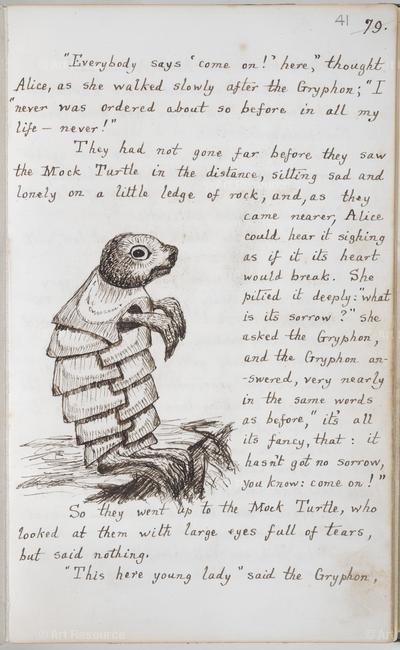 41 79.
"Everybody says 'come on!' here," thought
Alice, as she walked slowly after the Gryphon; "I
"never was ordered about so before in all my
life — never!"
They had not gone far before they saw
the Mock Turtle in the distance, sitting sad and
lonely on a little ledge of rock, and, as they
came nearer, Alice
could hear it sighing
as if it its heart
would break. She
pitied it deeply: "what
is its sorrow?" she
asked the Gryphon,
and the Gryphon an-
-swered, very nearly
in the same words
as before, "it's all
its fancy, that: it
hasn't got no sorrow,
you know: come on!"
So they went up to the Mock Turtle, who
looked at them with large eyes full of tears,
but said nothing.
"This here young lady" said the Gryphon,
© Art Resource
© Art Resource